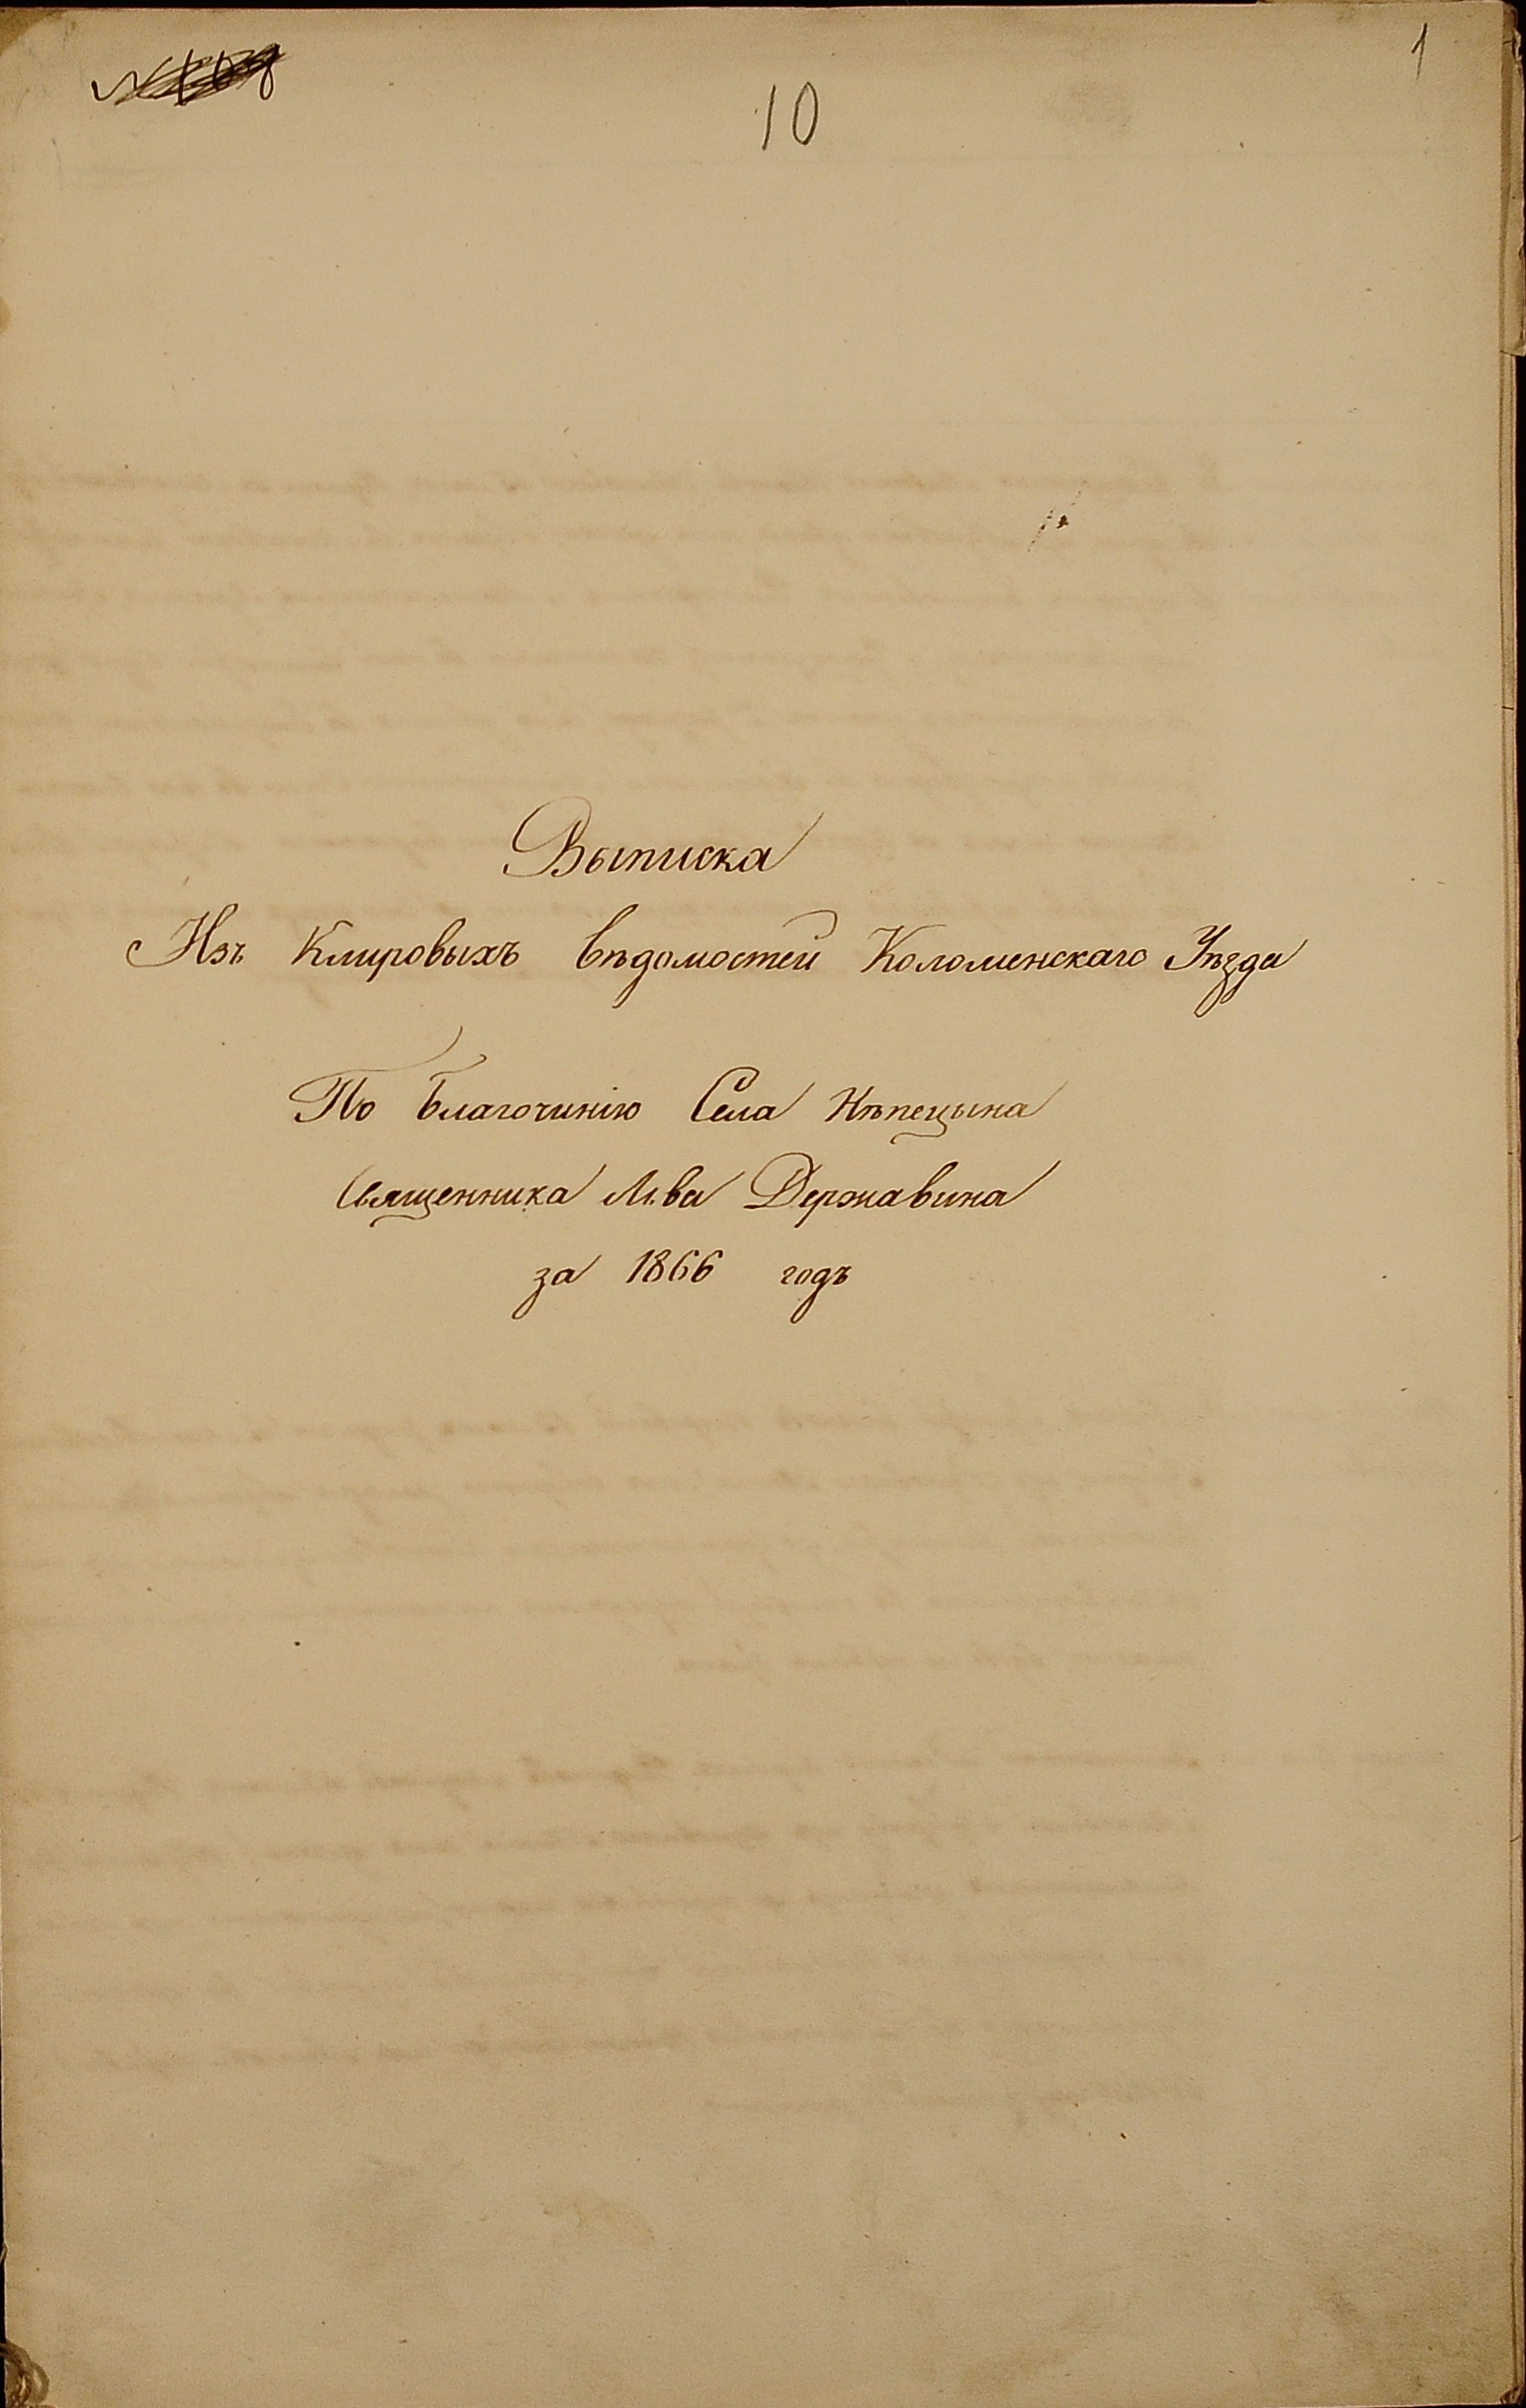 1
10
Выписка
Изъ Клировыхъ вѣдомостей Коломенскаго Уѣзда
По Благочинію Села Нѣпецына
Священника Льва Державина
за 1866 годъ